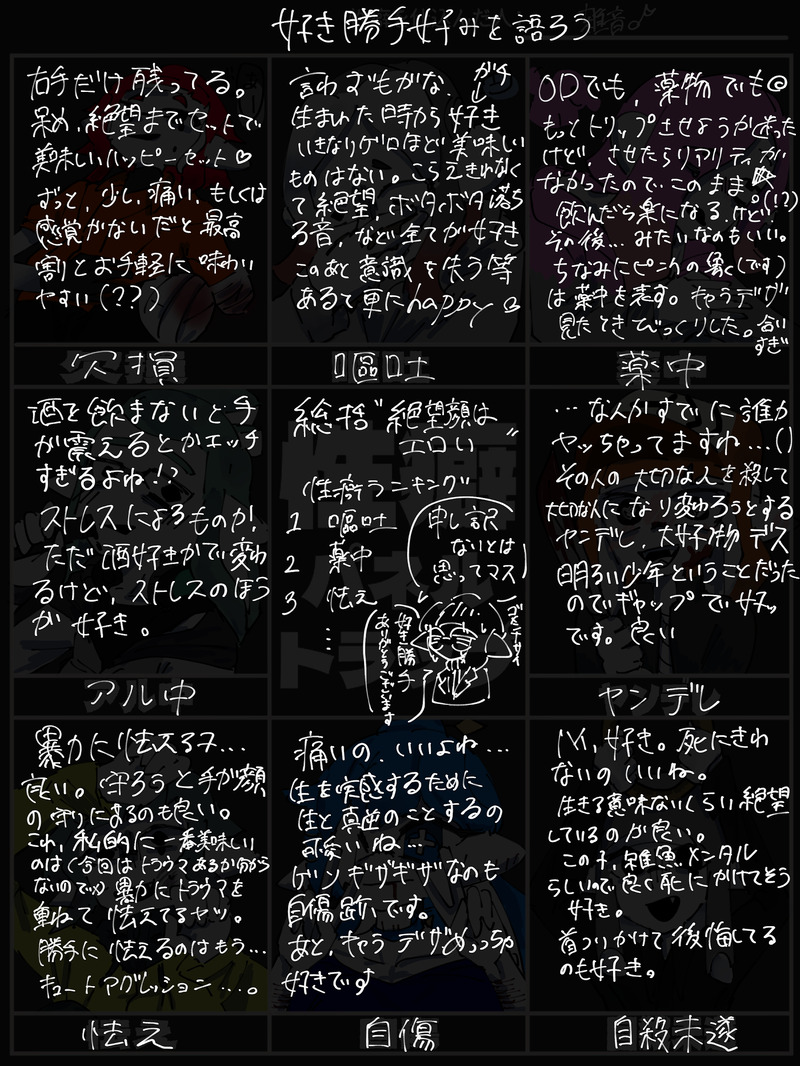 好き勝手好みを語ろう
右手だけ残ってる。
呆め、絶望までセットで
美味しいハッピーセット♡
ずっと、少し、痛い、もしくは
感覚がないだと最高
割とお手軽に味わい
やすい(??)
欠損
言わずもがな、ガチし
生まれた時から好き
いきなりゲロほど美味しい
ものはない。こらえきれなく
て絶望、ボタボタ落ち
る音、など全てが好き
このあと意識を失う等
あるて更にhappy
嘔吐
ODでも、薬物でも@
もっとトリップさせようか迷った
けど、させたらリアリティが
なかったので、このまま
飲んだら楽になる、けど。(!?)
その後…みたいなのもいい。
ちなみにピンクの鼻(です)
は薬中を表す。キャラデザ
見たときびっくりした。合い
すぎ
薬中
酒を飲まないと手
が震えるとかエッチ
すぎるよね!?
ストレスによるものか、
ただ酒好きかで変わ
るけど、ストレスのほう
が好き。
アル中
総括"絶望顔は
エロい"
性癖ランキング
1 嘔吐
2 薬中
3 怯え
⋮
申し訳
ないとは
思ってマス
ゴメンナサイ
好き勝手
ありがとうございます
性癖
パネル
トラップ
…な人かすでに誰か
ヤッちゃってますね…()
その人の大切な人を殺して
大切な人になり変わろうとする
ヤンデレ、大好物デス
明るい少年ということだった
のでギャップで好ッ
です。良い
ヤンデレ
暴力に怯えるヌ…
良い。守ろうと手が顔
の守りによるのも良い。
これ、私的に一番美味しい
のは(今回はトラウマあるか分から
ないので×)暴力にトラウマを
重ねて怯えてるヤツ。
勝手に怯えるのはもう…
キュートアグレッション…。
怯え
痛いの、いいよね…
生を実感するために
生と真逆のことするの
可愛いね…
ゲンギザギザなのも
自傷跡いです。
あと、キャラデザめっちゃ
好きです
自傷
ハイ、好き。死にきれ
ないのいいね。
生きる意味ないくらい絶望
しているのが良い。
この子、雑魚メンタル
らしいので、良く死にかけてそう
好き。
首つりかけて後悔してる
のも好き。
自殺未遂